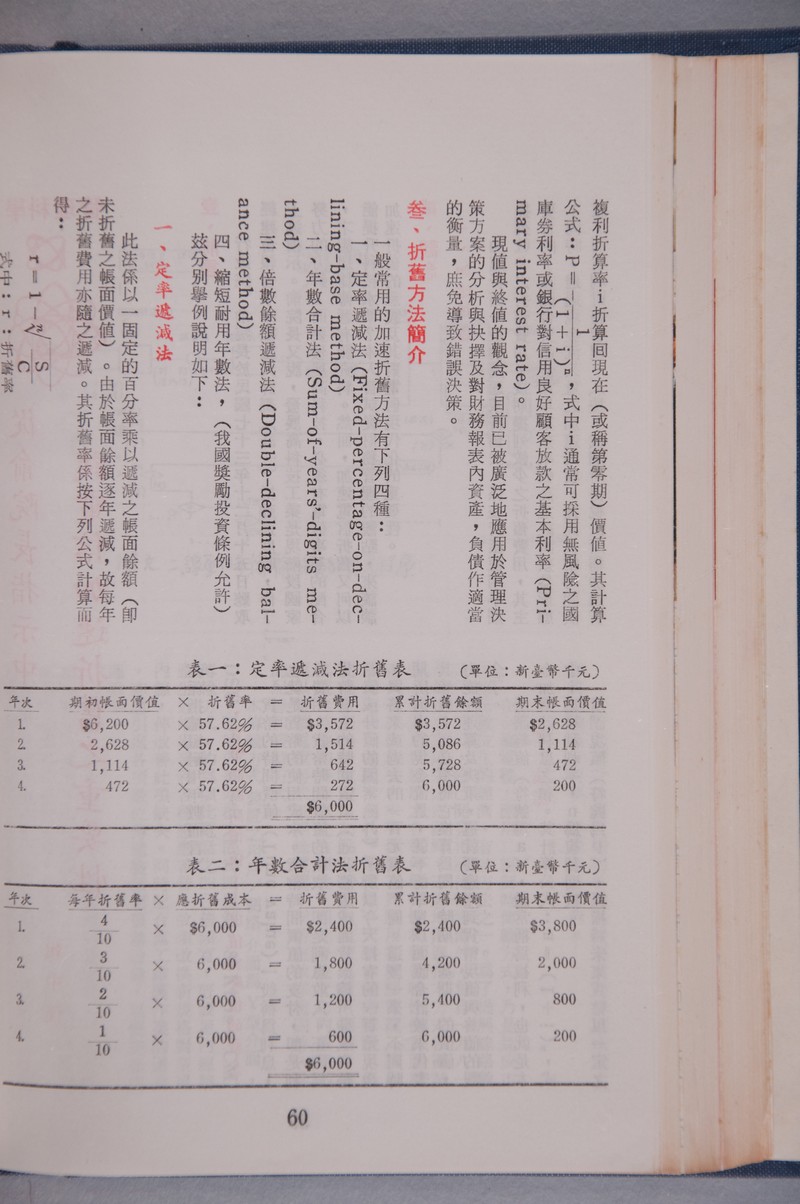 複利折算率i折算回現在（或稱第零期）價值。其計算
公式：P＝1/(1+i)ⁿ，式中i通常可採用無風險之國
庫券利率或銀行對信用良好顧客放款之基本利率（Pri-
mary interest rate）。
現值與終值的觀念，目前已被廣泛地應用於管理決
策方案的分析與抉擇及對財務報表內資產，負債作適當
的衡量，庶免導致錯誤決策。
叁、折舊方法簡介
一般常用的加速折舊方法有下列四種：
一、定率遞減法（Fixed-percentage-on-dec-
lining-base method）
二、年數合計法（Sum-of-years'-digits me-
thod）
三、倍數餘額遞減法（Double-declining bal-
ance method）
四、縮短耐用年數法，（我國獎勵投資條例允許）
玆分別舉例說明如下：
一、定率遞減法
此法係以一固定的百分率乘以遞減之帳面餘額（即
未折舊之帳面價值）。由於帳面餘額逐年遞減，故每年
之折舊費用亦隨之遞減。其折舊率係按下列公式計算而
得：
r＝1－ⁿ√(S/C)
式中：r：折舊率
表一：定率遞減法折舊表 （單位：新臺幣千元）
年次 期初帳面價值 × 折舊率 = 折舊費用 累計折舊餘額 期末帳面價值
1. $6,200 × 57.62% = $3,572 $3,572 $2,628
2. 2,628 × 57.62% = 1,514 5,086 1,114
3. 1,114 × 57.62% = 642 5,728 472
4. 472 × 57.62% = 272 6,000 200
$6,000
表二：年數合計法折舊表 （單位：新臺幣千元）
年次 每年折舊率 × 應折舊成本 = 折舊費用 累計折舊餘額 期末帳面價值
1. 4/10 × $6,000 = $2,400 $2,400 $3,800
2. 3/10 × 6,000 = 1,800 4,200 2,000
3. 2/10 × 6,000 = 1,200 5,400 800
4. 1/10 × 6,000 = 600 6,000 200
$6,000
60